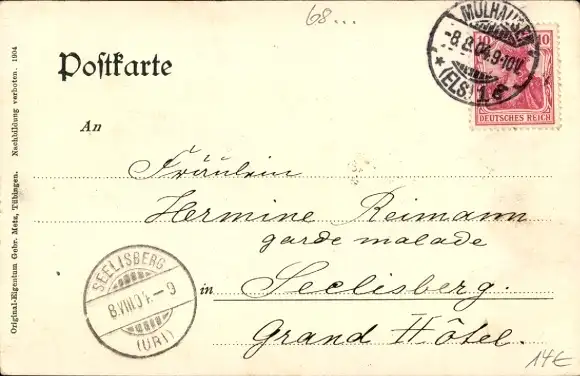 68...
MÜLHAUSEN
-8.8.04.9-10V.
* (ELS.) 1.c
10 10
DEUTSCHES REICH
Postkarte
An
Fräulein
Hermine Reimann
garde malade
in Seelisberg.
Grand Hôtel.
SEELISBERG
8.VIII.04.-9
(URI)
Original-Eigentum Gebr. Metz, Tübingen. Nachbildung verboten. 1904
14€